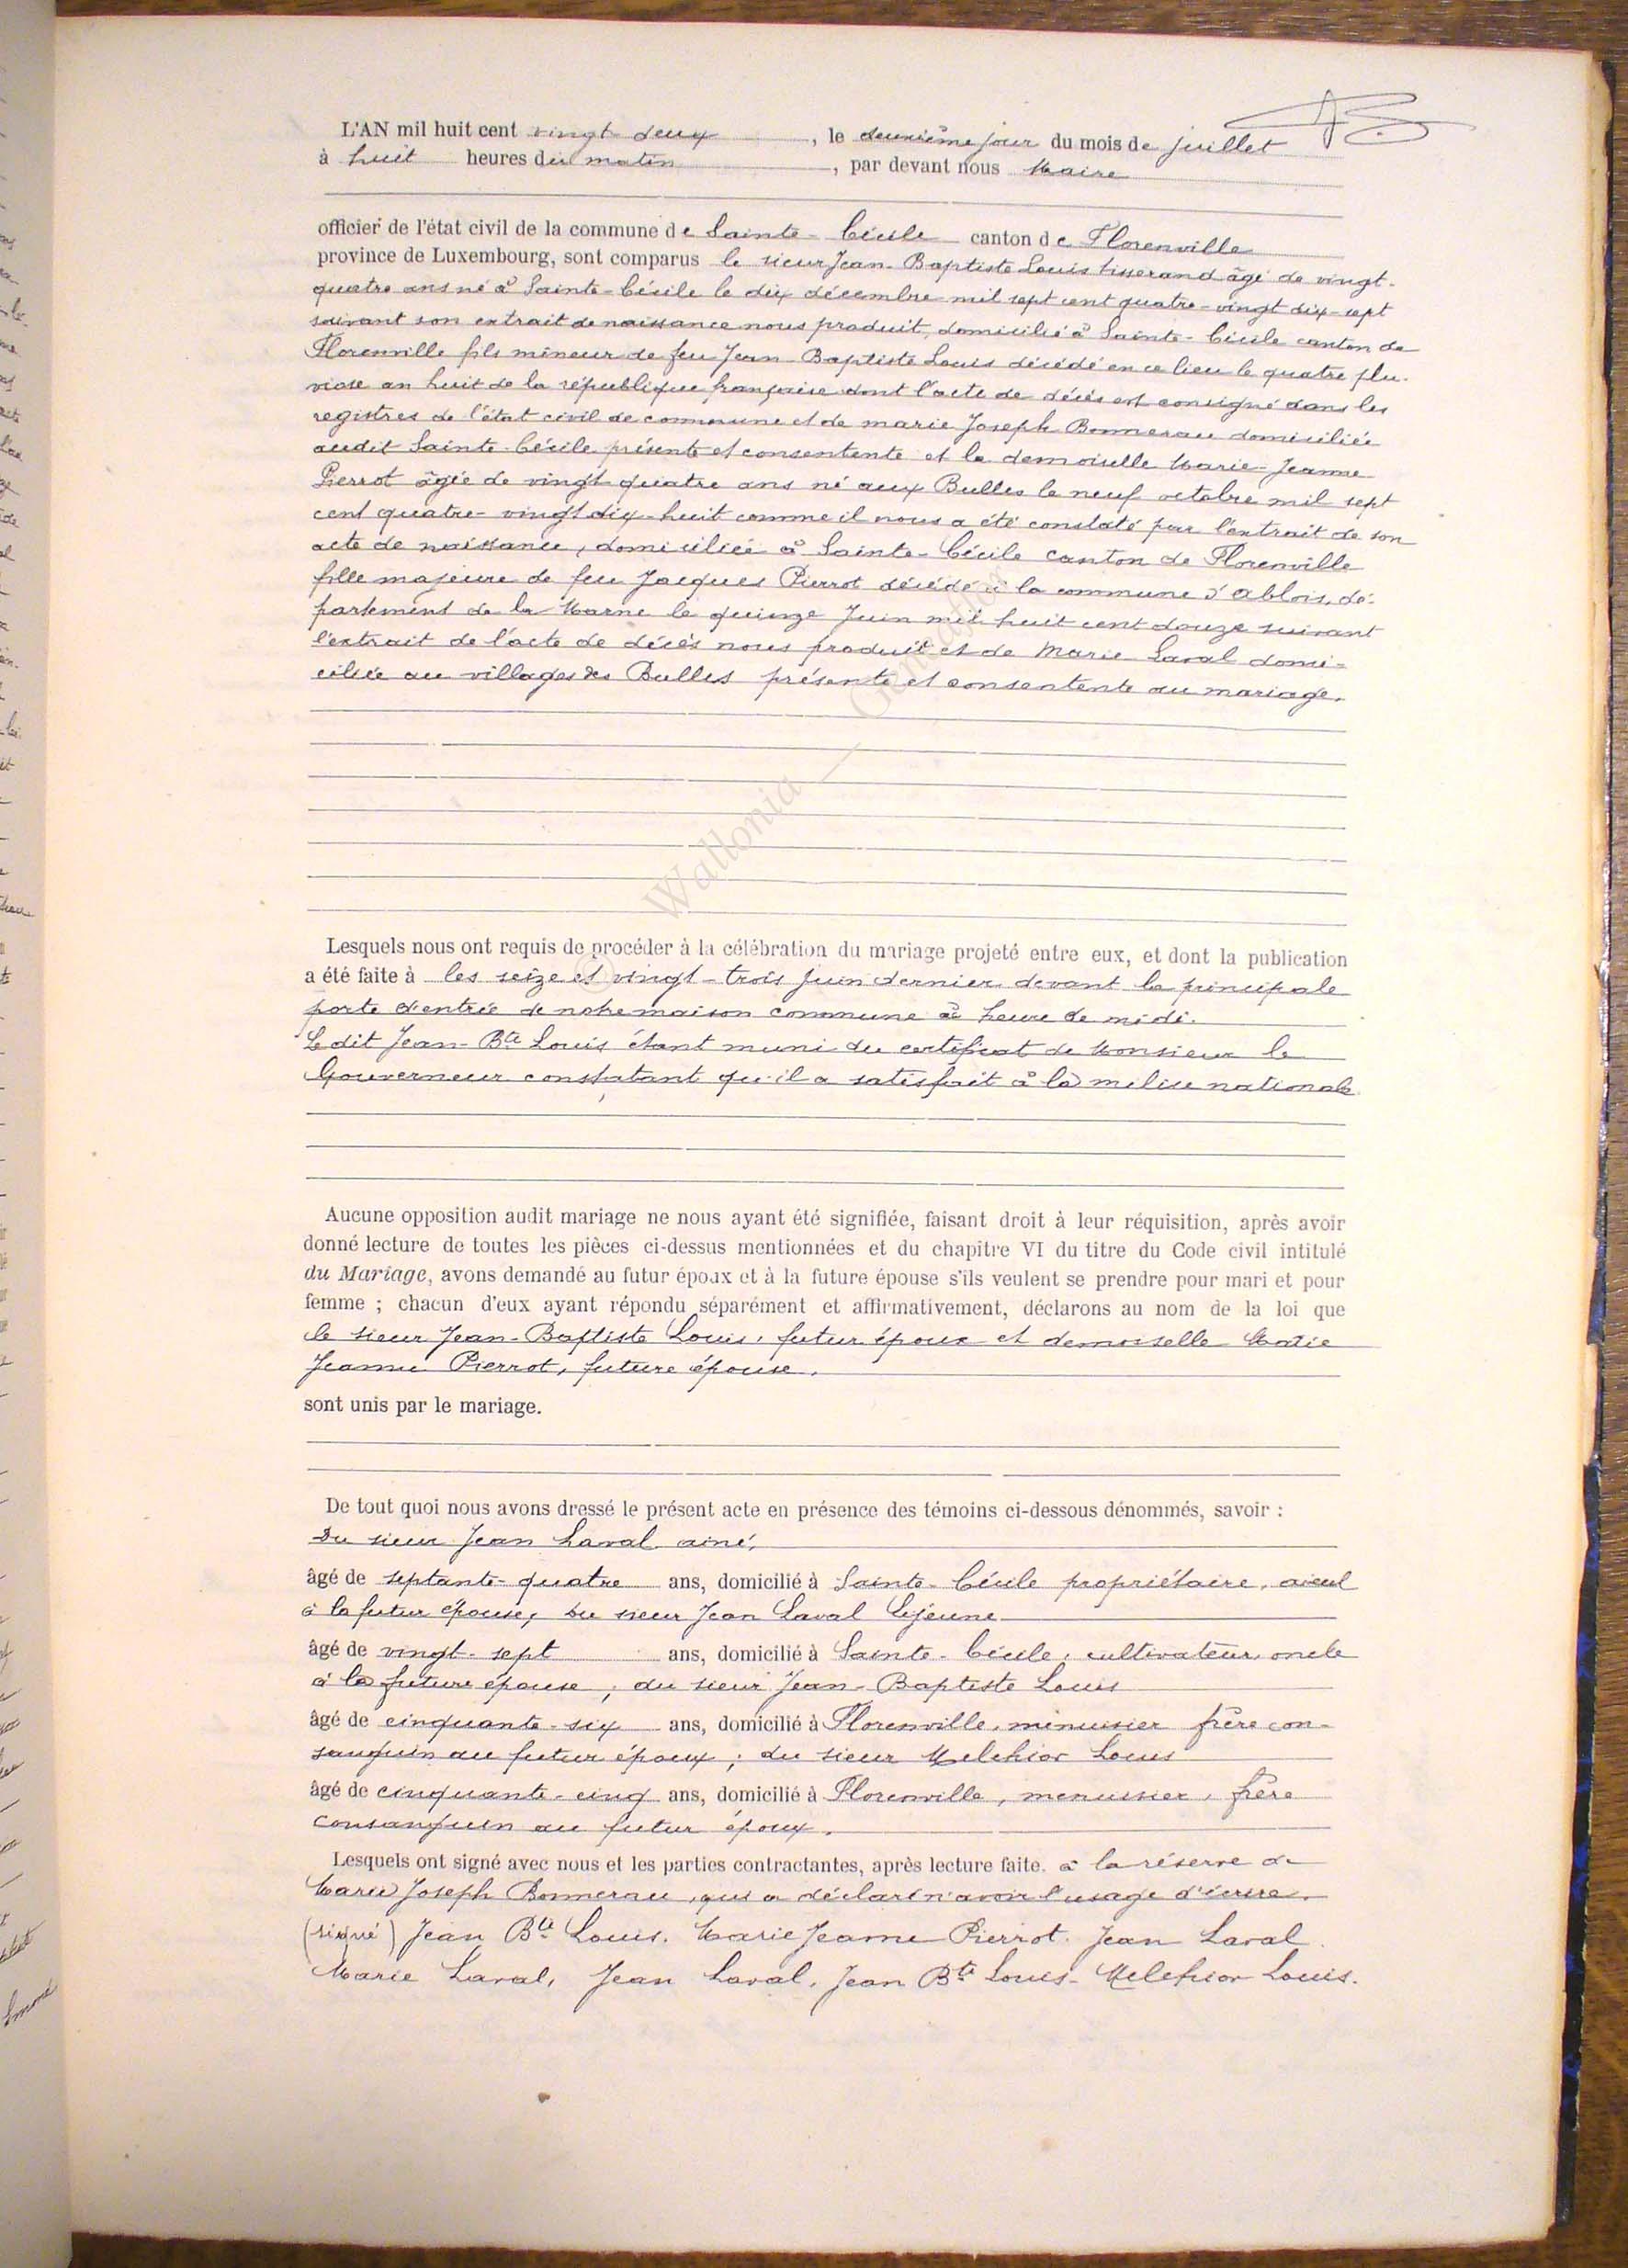 L'AN mil huit cent vingt deux, le deuxième jour du mois de juillet
à huit heures du matin, par devant nous Maire
officier de l'état civil de la commune de Sainte-Cécile canton de Florenville
province de Luxembourg, sont comparus le sieur Jean-Baptiste Louis tisserand âgé de vingt-
quatre ans né à Sainte-Cécile le dix décembre mil sept cent quatre-vingt dix-sept
suivant son extrait de naissance nous produit, domicilié à Sainte-Cécile canton de
Florenville fils mineur de feu Jean-Baptiste Louis décédé en ce lieu le quatre plu-
viose an huit de la république française dont l'acte de décès est consigné dans les
registres de l'état civil de commune et de marie Joseph Bonnerau domiciliée
audit Sainte-Cécile présente et consentente et la demoiselle Marie-Jeanne
Pierrot âgée de vingt quatre ans né aux Bulles le neuf octobre mil sept
cent quatre-vingt dix-huit comme il nous a été constaté par l'extrait de son
acte de naissance, domiciliée à Sainte-Cécile canton de Florenville
fille majeure de feu Jacques Pierrot décédé à la commune d'Ablois, dé-
partement de la Marne le quinze Juin mil huit cent douze suivant
l'extrait de l'acte de décès nous produit et de Marie Laval domi-
ciliée au village des Bulles présente et consentente au mariage.
© Wallonia —
Lesquels nous ont requis de procéder à la célébration du mariage projeté entre eux, et dont la publication
a été faite à les seize et vingt-trois Juin dernier devant la principale
porte d'entrée de notre maison commune à heure de midi.
Le dit Jean-Bte Louis étant muni du certificat de Monsieur le
Gouverneur constatant qu'il a satisfait à la milice nationale
Aucune opposition audit mariage ne nous ayant été signifiée, faisant droit à leur réquisition, après avoir
donné lecture de toutes les pièces ci-dessus mentionnées et du chapitre VI du titre du Code civil intitulé
du Mariage, avons demandé au futur époux et à la future épouse s'ils veulent se prendre pour mari et pour
femme ; chacun d'eux ayant répondu séparément et affirmativement, déclarons au nom de la loi que
le sieur Jean-Baptiste Louis, futur époux et demoiselle Marie
Jeanne Pierrot, future épouse,
sont unis par le mariage.
De tout quoi nous avons dressé le présent acte en présence des témoins ci-dessous dénommés, savoir :
Du sieur Jean Laval ainé,
âgé de septante-quatre ans, domicilié à Sainte-Cécile propriétaire, aieul
à la futur épouse; Du sieur Jean Laval Lejeune
âgé de vingt-sept ans, domicilié à Sainte-Cécile, cultivateur, oncle
à la future épouse ; du sieur Jean-Baptiste Louis
âgé de cinquante-six ans, domicilié à Florenville, menuisier frère con-
sanguin au futur époux ; du sieur Melchior Louis
âgé de cinquante-cinq ans, domicilié à Florenville, menuisier, frère
consanguin au futur époux.
Lesquels ont signé avec nous et les parties contractantes, après lecture faite. à la réserve de
Marie Joseph Bonnerau, qui a déclaré n'avoir l'usage d'écrire.
(signé) Jean Bte Louis. Marie Jeanne Pierrot. Jean Laval.
Marie Laval, Jean Laval, Jean Bte Louis-Melchior Louis.